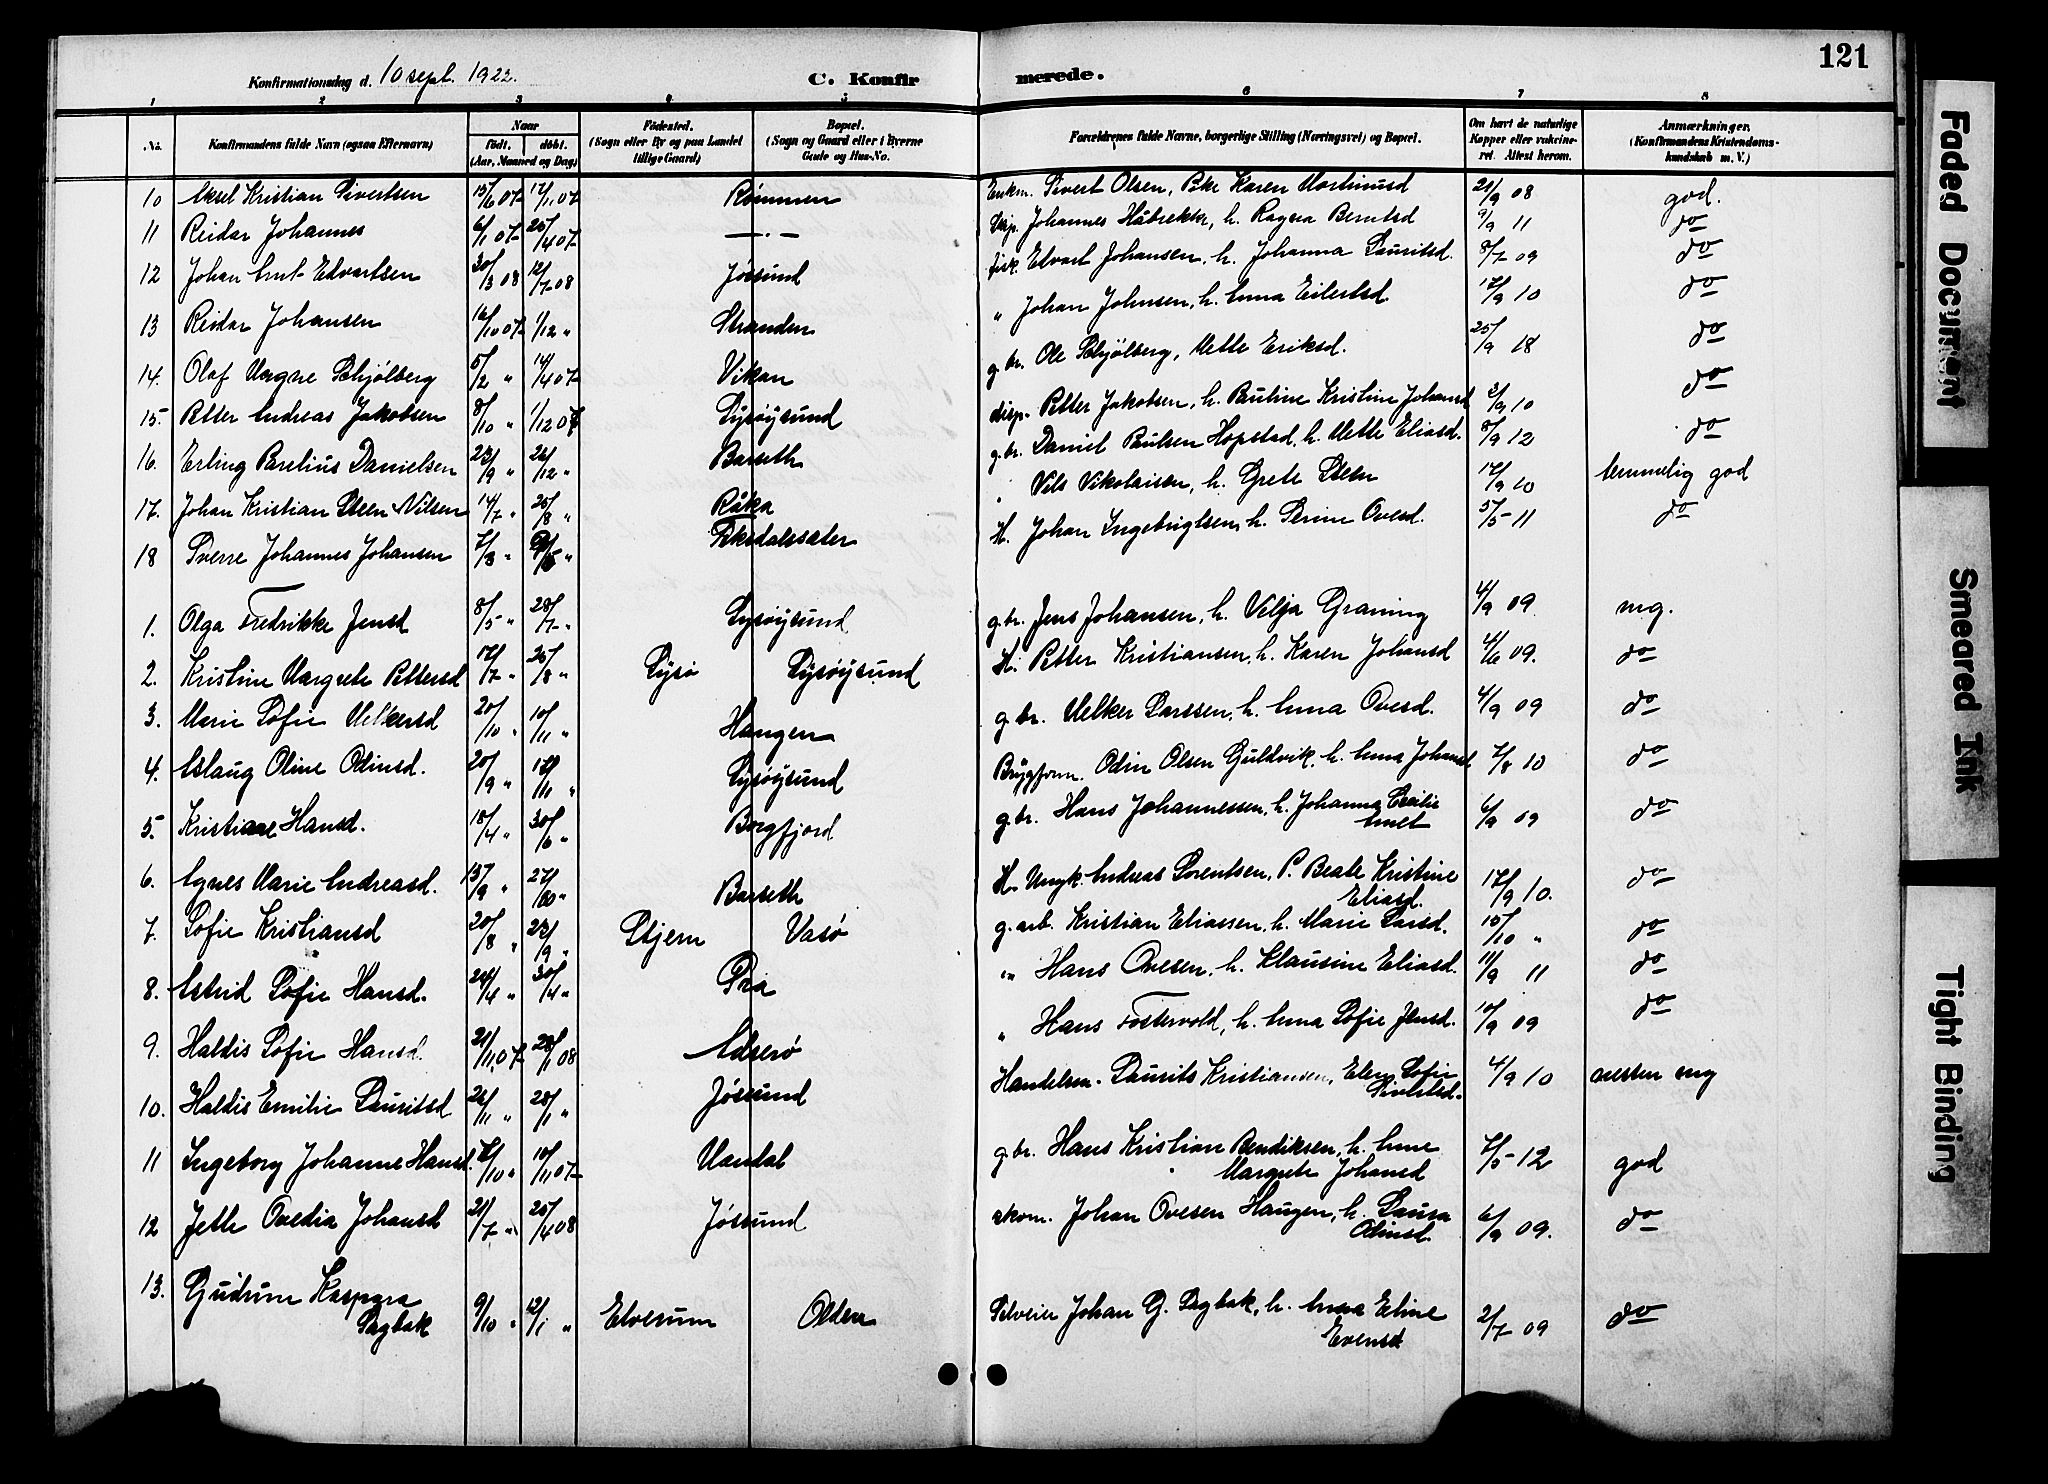 Konfirmationsdag d. 10 sept. 1922. C. Konfirmerede. 121
1 2 3 4 5 6 7 8
No. Konfirmandens fulde Navn (ogsaa Efternavn) Naar født. døbt. (Aar, Maaned og Dag) Fødested. (Sogn eller By og paa Landet tillige Gaard) Bopæl. (Sogn og Gaard eller i Byerne Gade og Hus-No. Forældrenes fulde Navne, borgerlige Stilling (Næringsvei) og Bopæl. Om havt de naturlige Kopper eller vakcineret. Attest herom. Anmærkninger. (Konfirmandens Kristendomskundskab m. V.)
10 Aksel Kristian Sivertsen 15/6 07 17/11 07 Rømmen Enkm. Sivert Olsen, Karen Martinusd 21/9 08 god.
11 Reidar Johannes 6/1 07 25/4 07 —.— Johannes Håbrekke, h. Ragna Berntsd 9/9 11 do
12 Johan Arnt Edvartsen 30/3 08 12/7 08 Jøssund fisk. Edvart Johansen, h. Johanna Lauritsd. 8/7 09 do
13 Reidar Johansen 16/10 07 1/12 " Stranden " Johan Johnsen, h. Anna Eilertsd. 17/9 10 do
14. Olaf Magne Schjølberg 5/2 " 14/4 07 Vikan g. br. Ole Schjølberg, Mette Eriksd. 25/9 18 do
15. Petter Andreas Jakobsen 8/10 " 1/12 07 Lysøysund disp. Petter Jakobsen, h. Pauline Kristine Johansd 2/9 10 do
16. Erling Parelius Danielsen 23/9 " 26/12 " Barseth g. br. Daniel Paulsen Hopstad, h. Mette Eliasd. 8/9 12 do
17. Johan Kristian Steen Nilsen 14/7 " 25/8 " Råka " Nils Nikolaisen, h. Grete Steen 17/9 10 temmelig god
18 Sverre Johannes Johansen 7/3 " Teksdalssæter H. Johan Ingebrigtsen, h. Serine Ovesd. 5/5 11 do
1. Olga Fredrikke Jensd 8/5 " 28/7 " Lysøysund g. br. Jens Johansen, h. Vilja Graning 4/9 09 mg.
2. Kristine Margrete Pettersd 17/7 " 25/8 " Lysø Lysøysund H. Petter Kristiansen, h. Karen Johansd 4/6 09. do
3. Marie Sofie Melkersd 20/10 " 10/11 " Haugen g. br. Melker Larssen, h. Anna Ovesd. 4/9 09 do
4. Aslaug Oline Odinsd. 20/9 " 17/11 " Lysøysund Byggform. Odin Olsen Guldvik, h. Anna Johansd 7/8 10 do
5. Kristiane Hansd. 18/4 " 30/6 " Borgfjord g. br. Hans Johannessen, h. Johanna Cecilie 6/9 09 do
6. Agnes Marie Andreasd. 13/9 " Barseth H. Andreas Lorentsen, P. Beate Kristine Eliasd. 17/9 10. do
7. Sofie Kristiansd 20/8 " 23/9 " Stjern Vasø g. arb. Kristian Eliassen, h. Marie Larsd. 15/10 " do
8. Astrid Sofie Hansd. 24/4 " 30/4 " Pra " Hans Ovesen, h. Klausine Eliasd. 11/9 11 do
9. Haldis Sofie Hansd. 21/11 07 28/1 08 Adserø " Hans Fostervold, h. Anna Sofie Jensd. 10/9 09 do
10. Haldis Emilie Lauritsd 26/11 " 28/1 " Jøssund Handelsm. Laurits Kristiansen, Elen Sofie 4/9 10 næsten mg
11 Ingeborg Johanne Hansd. 7/10 " 10/11 07 Mandal g. br. Hans Kristian Bendiksen, h. Anne Margrete Johansd 7/5 12 god
12 Jette Ovedia Johansd 21/7 " 25/4 08 Jøssund skom. Johan Ovesen Haugen, h. Laura Odinsd. 6/9 09. do
13. Gudrun Kaspara Sagbak 9/10 " 12/1 " Elverum Olden Johan G. Sagbak, h. Anna Eline Evensd 2/7 09 do
Faded Document
Smeared Ink
Tight Binding